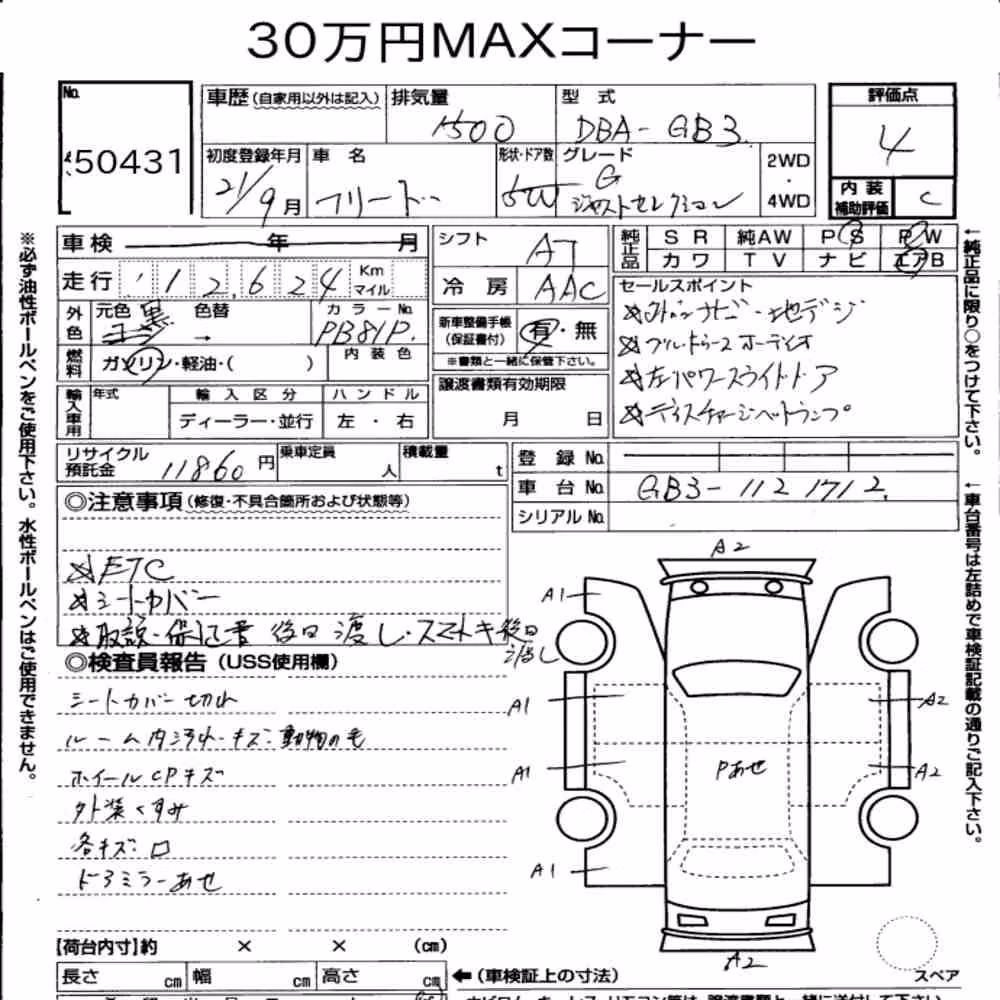 30万円MAXコーナー
No.
50431
車歴 (自家用以外は記入)
排気量
1500
型 式
DBA-GB3
評価点
4
内装
補助評価
C
初度登録年月
21/9月
車 名
フリード
形状・ドア数
5W
グレード
G
ジャストセレクション
2WD
・
4WD
車検 年 月
走行 126,24 Km
マイル
シフト
AT
冷 房
AAC
純正品
SR 純AW PS PW
カワ TV ナビ エアB
外色
元色 黒
色替
→
カラーNo.
PB81P
燃料
ガソリン・軽油・( )
内装色
新車整備手帳
(保証書付)
有・無
※書類と一緒に保管下さい。
セールスポイント
☆外ナビ・地デジ
☆左パワースライドドア
☆ディスチャージヘッドランプ
輸入車用
年式
輸入区分
ディーラー・並行
ハンドル
左・右
譲渡書類有効期限
月 日
リサイクル
預託金
11860円
乗車定員
人
積載量
t
登録No.
車台No.
GB3-1121712
シリアルNo.
◎注意事項(修復・不具合箇所および状態等)
☆ETC
☆シートカバー
☆取説・保証書 後日渡し・スマートキー後日
渡し
◎検査員報告(USS使用欄)
シートカバー切れ
ルーム内汚れ・キズ・動物の毛
ホイールCPキズ
外装くすみ
各キズ・凹
ドアミラーあせ
A2
A1
A1
A1
A1
Pあせ
A2
A2
A2
【荷台内寸】約 × × (cm)
長さ cm 幅 cm 高さ cm
←(車検証上の寸法)
スペア
※必ず油性ボールペンをご使用下さい。水性ボールペンはご使用できません。
←純正品に限り○をつけて下さい。
←車台番号は左詰めで車検証記載の通りご記入下さい。